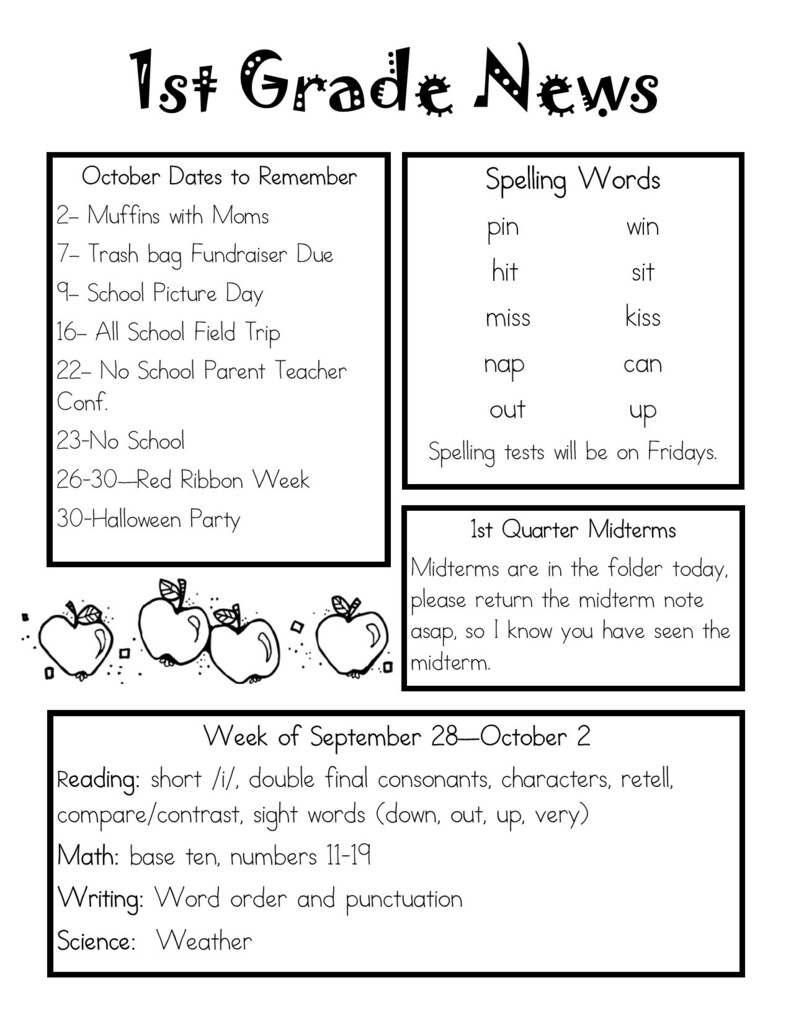 1st Grade News
October Dates to Remember
2– Muffins with Moms
7– Trash bag Fundraiser Due
9– School Picture Day
16– All School Field Trip
22– No School Parent Teacher
Conf.
23-No School
26-30—Red Ribbon Week
30-Halloween Party
Spelling Words
pin win
hit sit
miss kiss
nap can
out up
Spelling tests will be on Fridays.
1st Quarter Midterms
Midterms are in the folder today,
please return the midterm note
asap, so I know you have seen the
midterm.
Week of September 28—October 2
Reading: short /i/, double final consonants, characters, retell,
compare/contrast, sight words (down, out, up, very)
Math: base ten, numbers 11-19
Writing: Word order and punctuation
Science: Weather